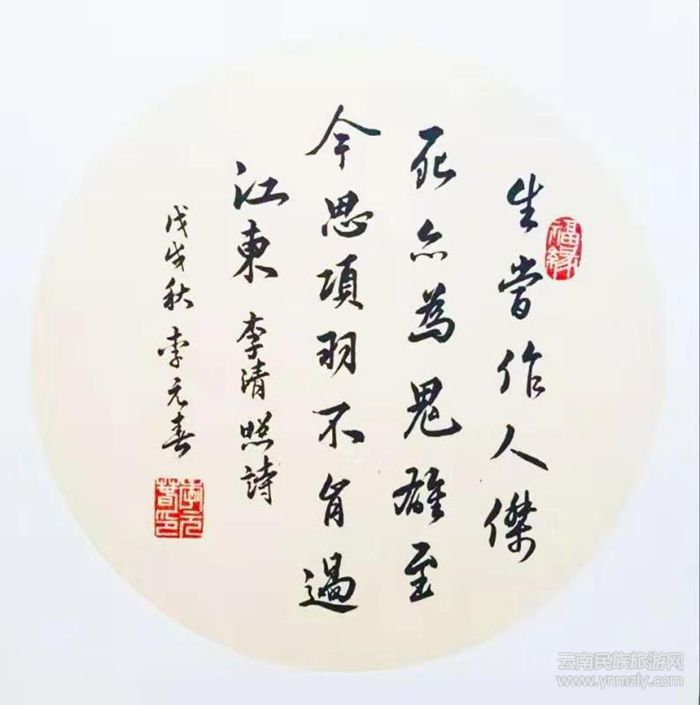 生當作人傑
福緣
死亦為鬼雄至
今思項羽不肯過
江東 李清照詩
戊戌秋 李元喜
李元喜印
云南民族旅游网
www.ynmzly.com